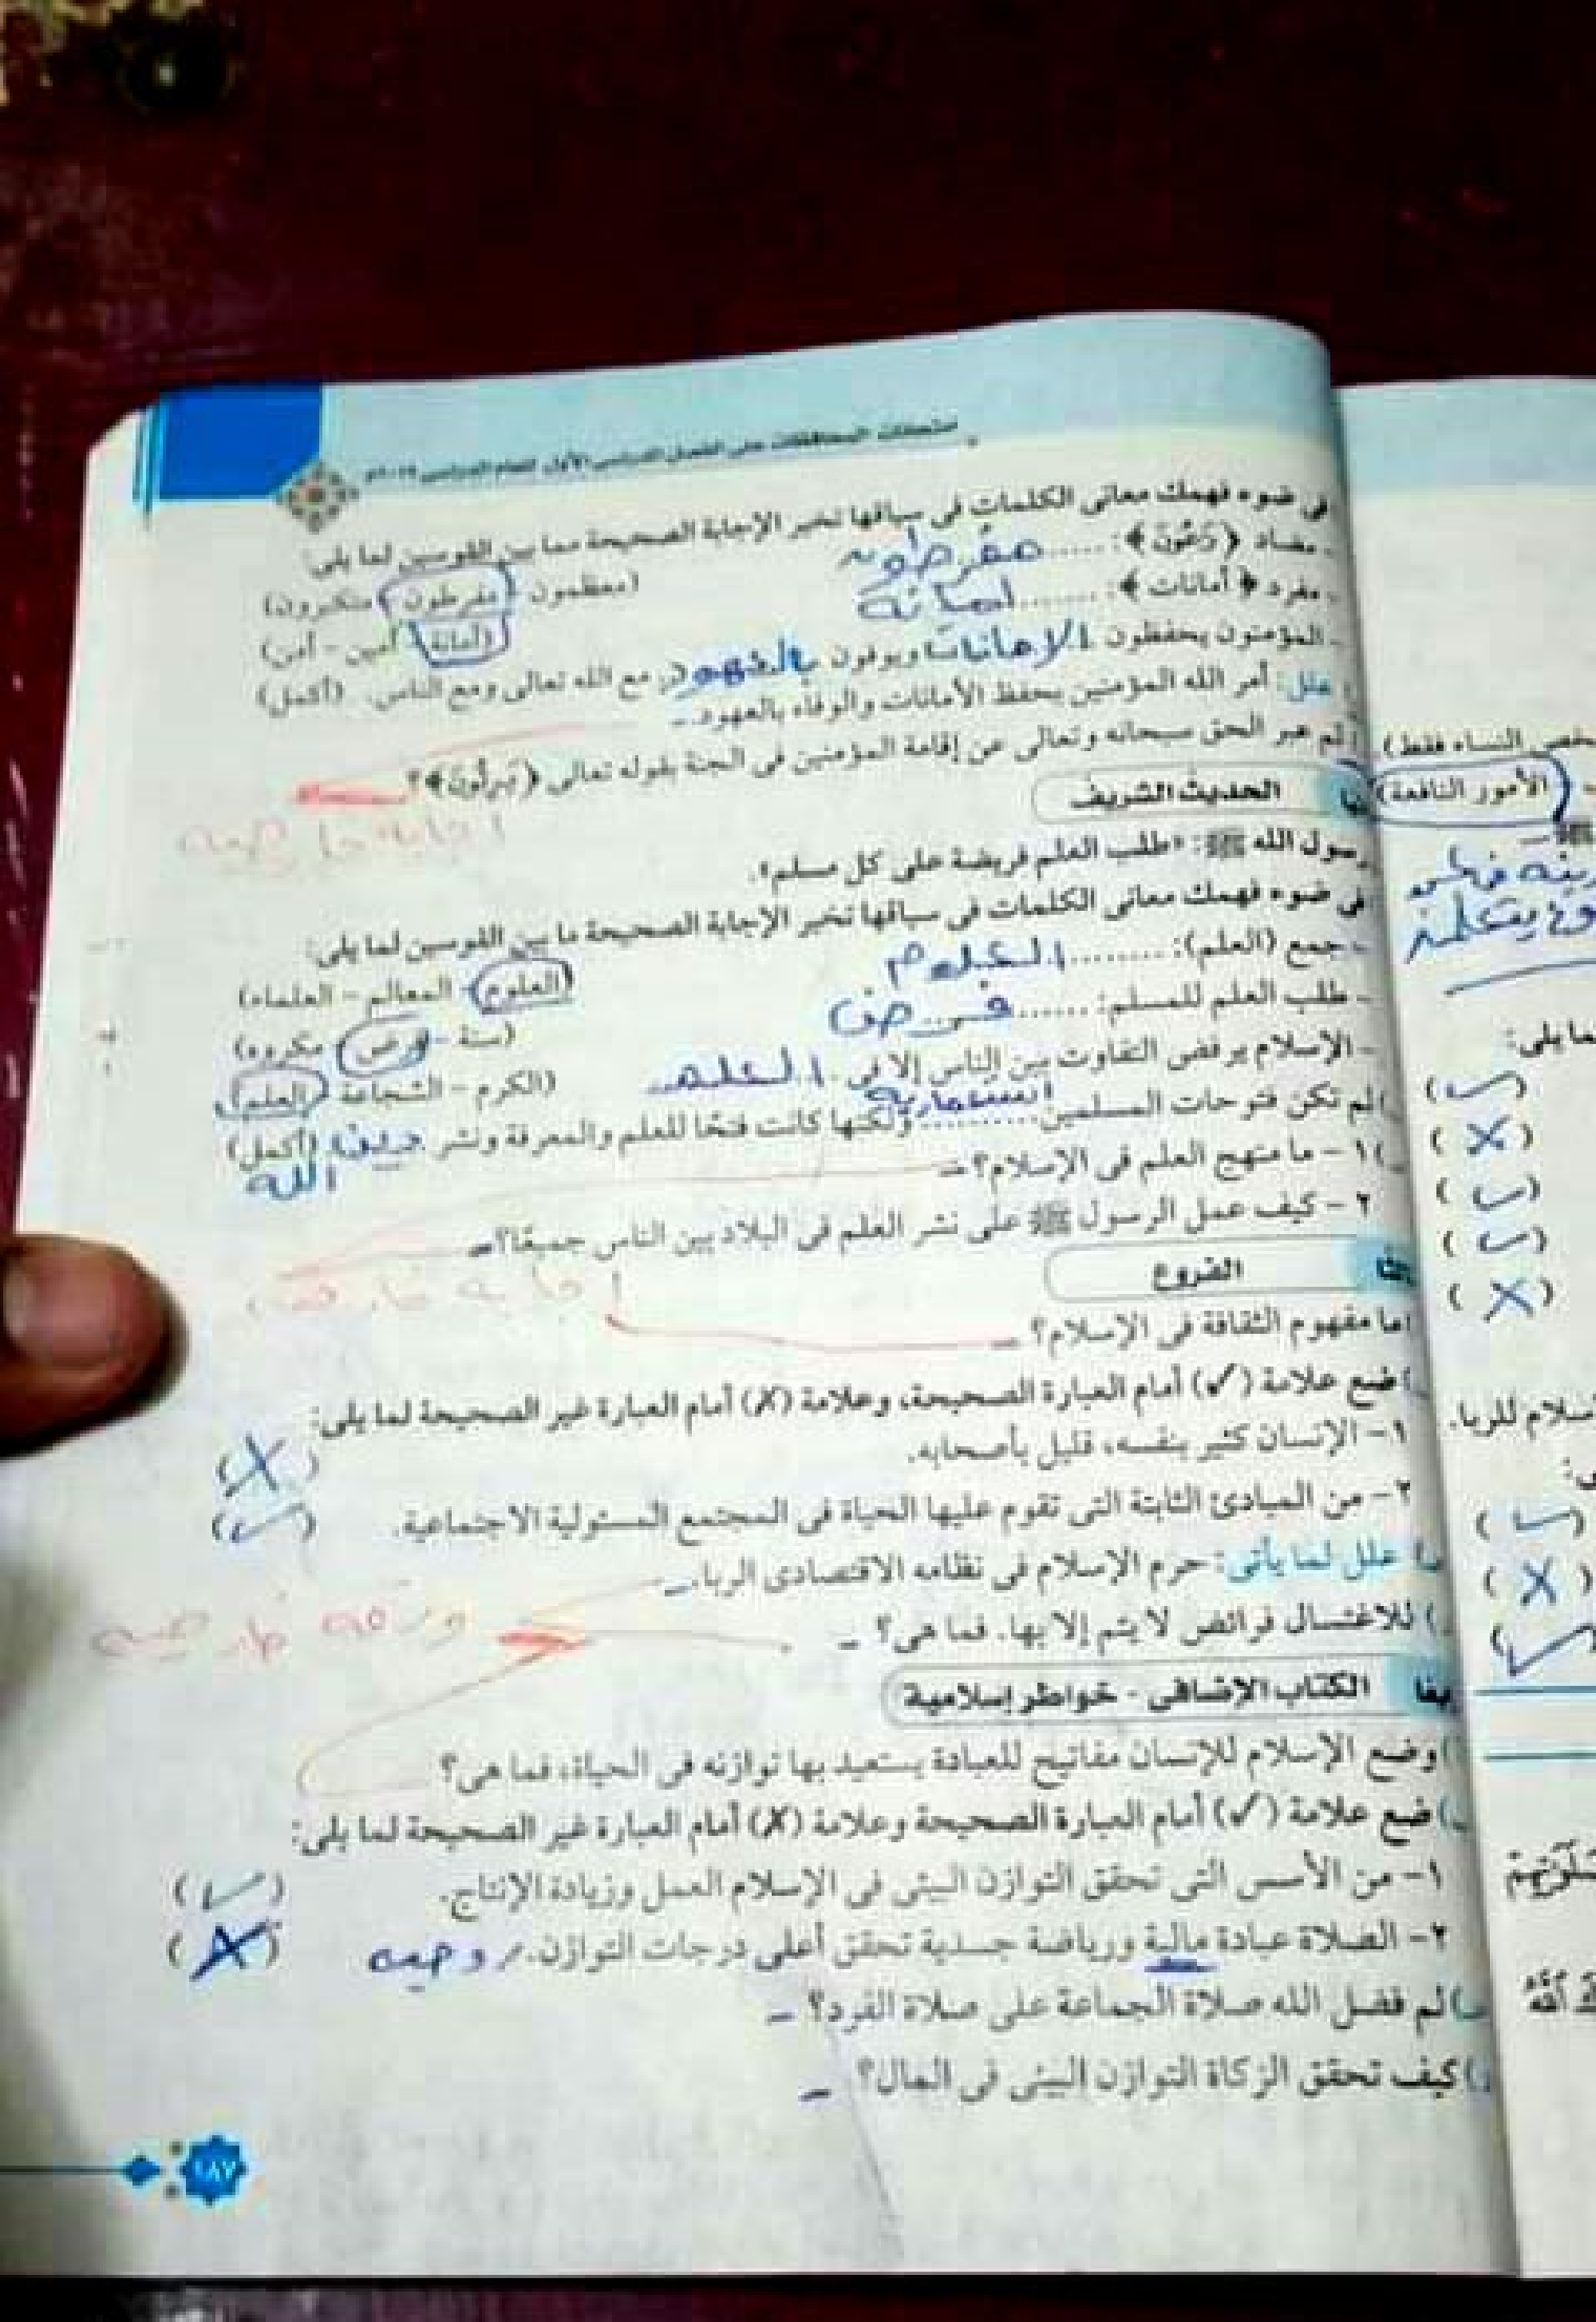 امتحانات المحافظات على الفصل الدراسى الأول للعام الدراسى ٢٠١٩م
فى ضوء فهمك معانى الكلمات فى سياقها تخير الإجابة الصحيحة مما بين القوسين لما يلى:
- مضاد ﴿رَاعُونَ﴾: ...... مفرطون (معظمون - مفرطون - متكبرون)
- مفرد ﴿أمانات﴾: ...... امانه (أمانة - أمين - أمن)
- المؤمنون يحفظون الامانات ويوفون بالعهود مع الله تعالى ومع الناس. (أكمل)
علل: أمر الله المؤمنين بحفظ الأمانات والوفاء بالعهود.
لم عبر الحق سبحانه وتعالى عن إقامة المؤمنين فى الجنة بقوله تعالى ﴿يَرِثُونَ﴾؟
الحديث الشريف
رسول الله ﷺ: «طلب العلم فريضة على كل مسلم».
فى ضوء فهمك معانى الكلمات فى سياقها تخير الإجابة الصحيحة ما بين القوسين لما يلى:
- جمع (العلم): ...... العلوم (العلوم - المعالم - العلماء)
- طلب العلم للمسلم: ...... فرض (سنة - فرض - مكروه)
- الإسلام يرفض التفاوت بين الناس إلا فى العلم (الكرم - الشجاعة - العلم)
لم تكن فتوحات المسلمين استعمارية ولكنها كانت فتحًا للعلم والمعرفة ونشر دين الله (أكمل)
١ - ما منهج العلم فى الإسلام؟
٢ - كيف عمل الرسول ﷺ على نشر العلم فى البلاد بين الناس جميعًا؟
اجابة خارجيه
الفروع
ما مفهوم الثقافة فى الإسلام؟
ضع علامة (✓) أمام العبارة الصحيحة، وعلامة (X) أمام العبارة غير الصحيحة لما يلى:
١- الإنسان كثير بنفسه، قليل بأصحابه. (X)
٢- من المبادئ الثابتة التى تقوم عليها الحياة فى المجتمع المسئولية الاجتماعية. (✓)
علل لما يأتى: حرم الإسلام فى نظامه الاقتصادى الربا.
للاغتسال فرائض لا يتم إلا بها. فما هى؟
ورقه خارجيه
الكتاب الإضافى - خواطر إسلامية
وضع الإسلام للإنسان مفاتيح للعبادة يستعيد بها توازنه فى الحياة، فما هى؟
ضع علامة (✓) أمام العبارة الصحيحة وعلامة (X) أمام العبارة غير الصحيحة لما يلى:
١- من الأسس التى تحقق التوازن البيئى فى الإسلام العمل وزيادة الإنتاج. (✓)
٢- الصلاة عبادة مالية ورياضة جسدية تحقق أعلى درجات التوازن. روحيه (X)
لم فضل الله صلاة الجماعة على صلاة الفرد؟
كيف تحقق الزكاة التوازن البيئى فى المال؟
١٨٧
النساء فقط)
(الأمور النافعة)
ما يلى:
(✓)
(X)
(✓)
(✓)
(X)
للربا.
(✓)
(X)
(✓)